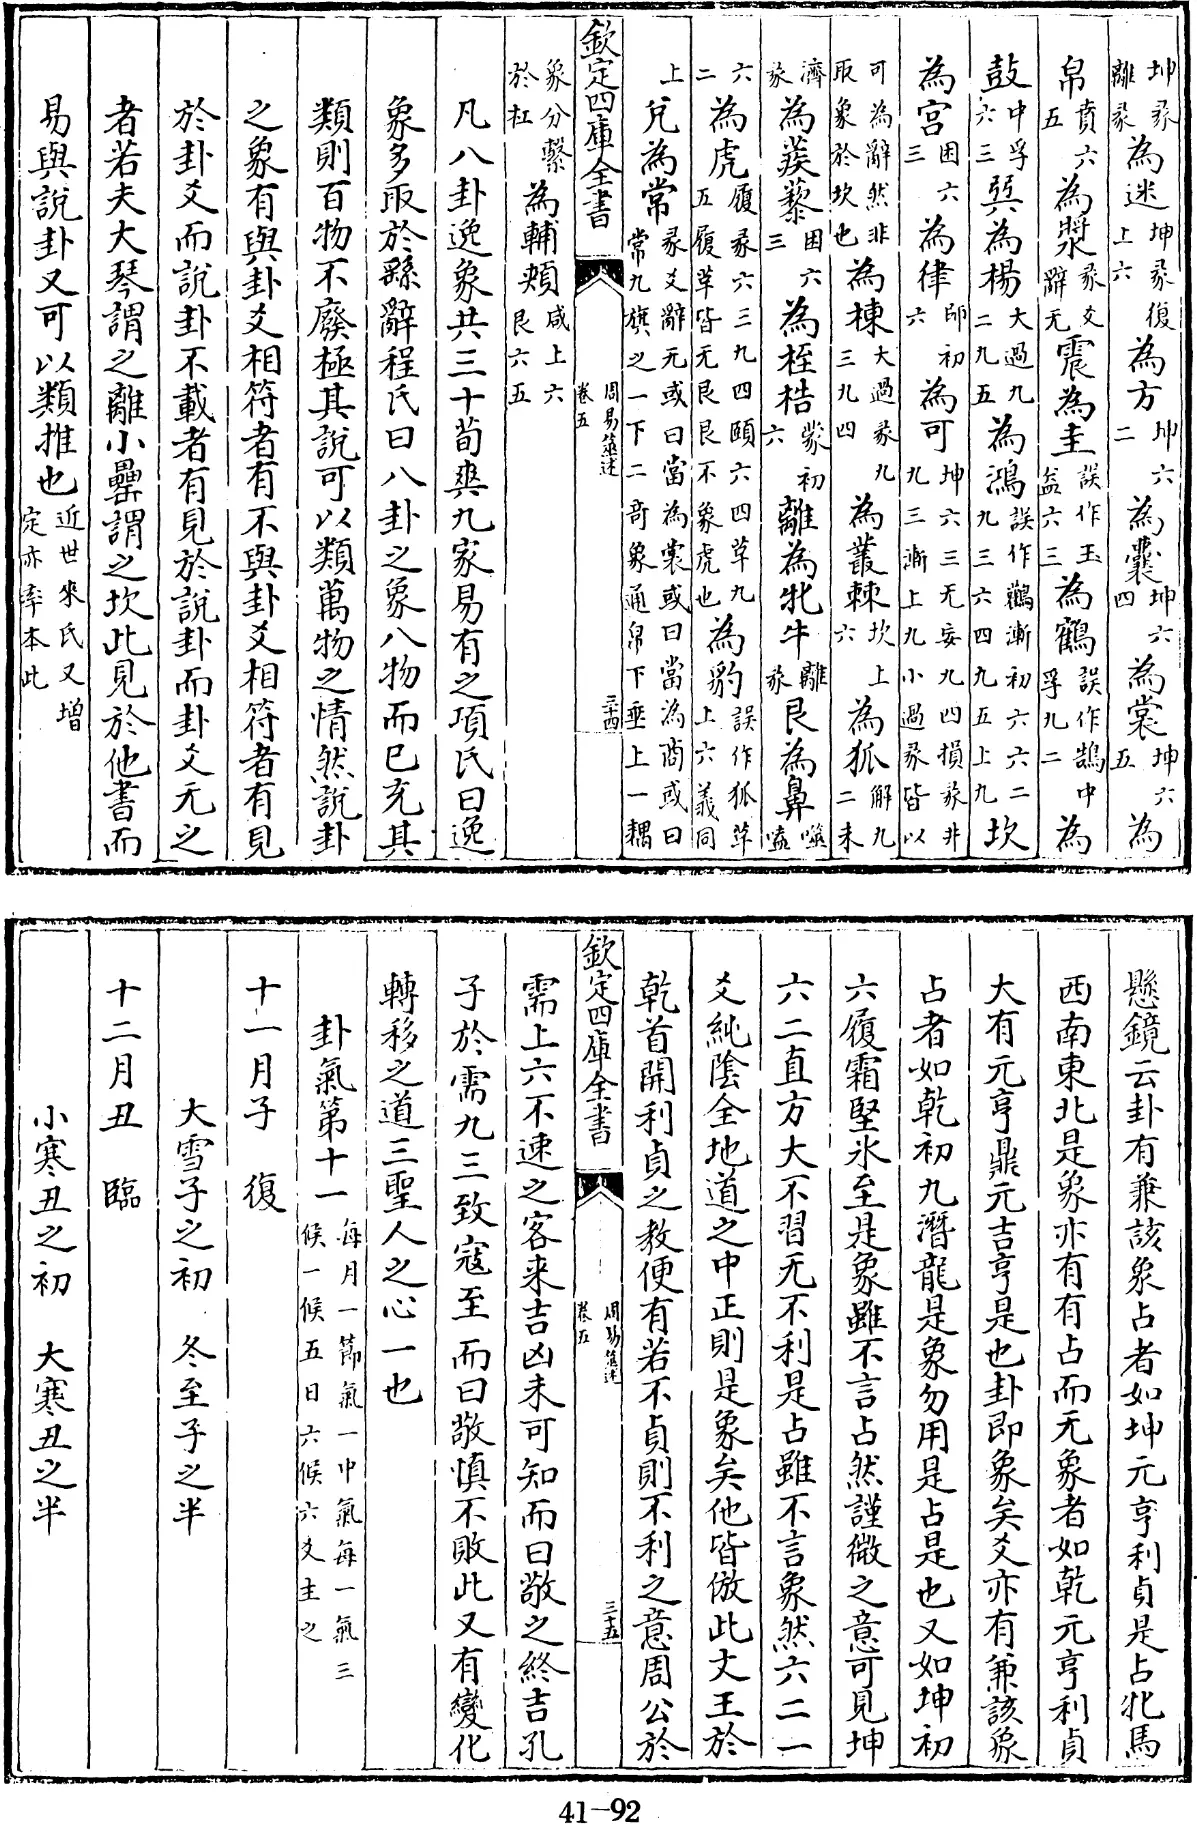 坤彖離彖為迷坤彖復上六為方坤六二為囊坤六四為裳坤六五為
帛賁六五為漿彖爻辭无震為圭誤作玉益六三為鶴誤作鵠中孚九二為
鼓中孚六三巽為楊大過九二九五為鴻誤作鸛漸初六六二九三六四九五上九坎
為宮困六三為律師初六為可坤六三无妄九四損彖非九三漸上九小過彖皆以
可為辭然非取象於坎也為棟大過彖九三九四為叢棘坎上六為狐解九二未
濟彖為蒺藜困六三為桎梏蒙初六離為牝牛離彖艮為鼻噬嗑
六二為虎履彖六三九四頤六四革九五履革皆无艮艮不象虎也為豹誤作狐革上六義同
上兌為常彖爻辭无或曰當為裳或曰當為商或曰常九旗之一下二奇象通帛下垂上一耦
欽定四庫全書 周易筮述卷五 三十四
象分繫於杠為輔頰咸上六艮六五
凡八卦逸象共三十荀爽九家易有之項氏曰逸
象多取於繇辭程氏曰八卦之象八物而已充其
類則百物不廢極其說可以類萬物之情然說卦
之象有與卦爻相符者有不與卦爻相符者有見
於卦爻而說卦不載者有見於說卦而卦爻无之
者若夫大琴謂之離小罍謂之坎此見於他書而
易與說卦又可以類推也近世來氏又增定亦率本此
懸鏡云卦有兼該象占者如坤元亨利貞是占牝馬
西南東北是象亦有有占而无象者如乾元亨利貞
大有元亨鼎元吉亨是也卦即象矣爻亦有兼該象
占者如乾初九潛龍是象勿用是占是也又如坤初
六履霜堅氷至是象雖不言占然謹微之意可見坤
六二直方大不習无不利是占雖不言象然六二一
爻純陰全地道之中正則是象矣他皆倣此文王於
乾首開利貞之教便有若不貞則不利之意周公於
欽定四庫全書 周易筮述卷五 三十五
需上六不速之客来吉凶未可知而曰敬之終吉孔
子於需九三致寇至而曰敬慎不敗此又有變化
轉移之道三聖人之心一也
卦氣第十一每月一節氣一中氣每一氣三候一候五日六候六爻主之
十一月子 復
大雪子之初 冬至子之半
十二月丑 臨
小寒丑之初 大寒丑之半
41-92